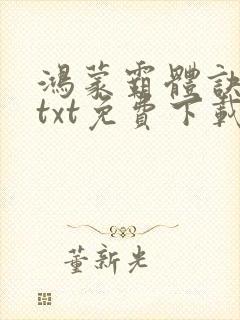 鴻蒙霸體訣
txt免費下載
董新光